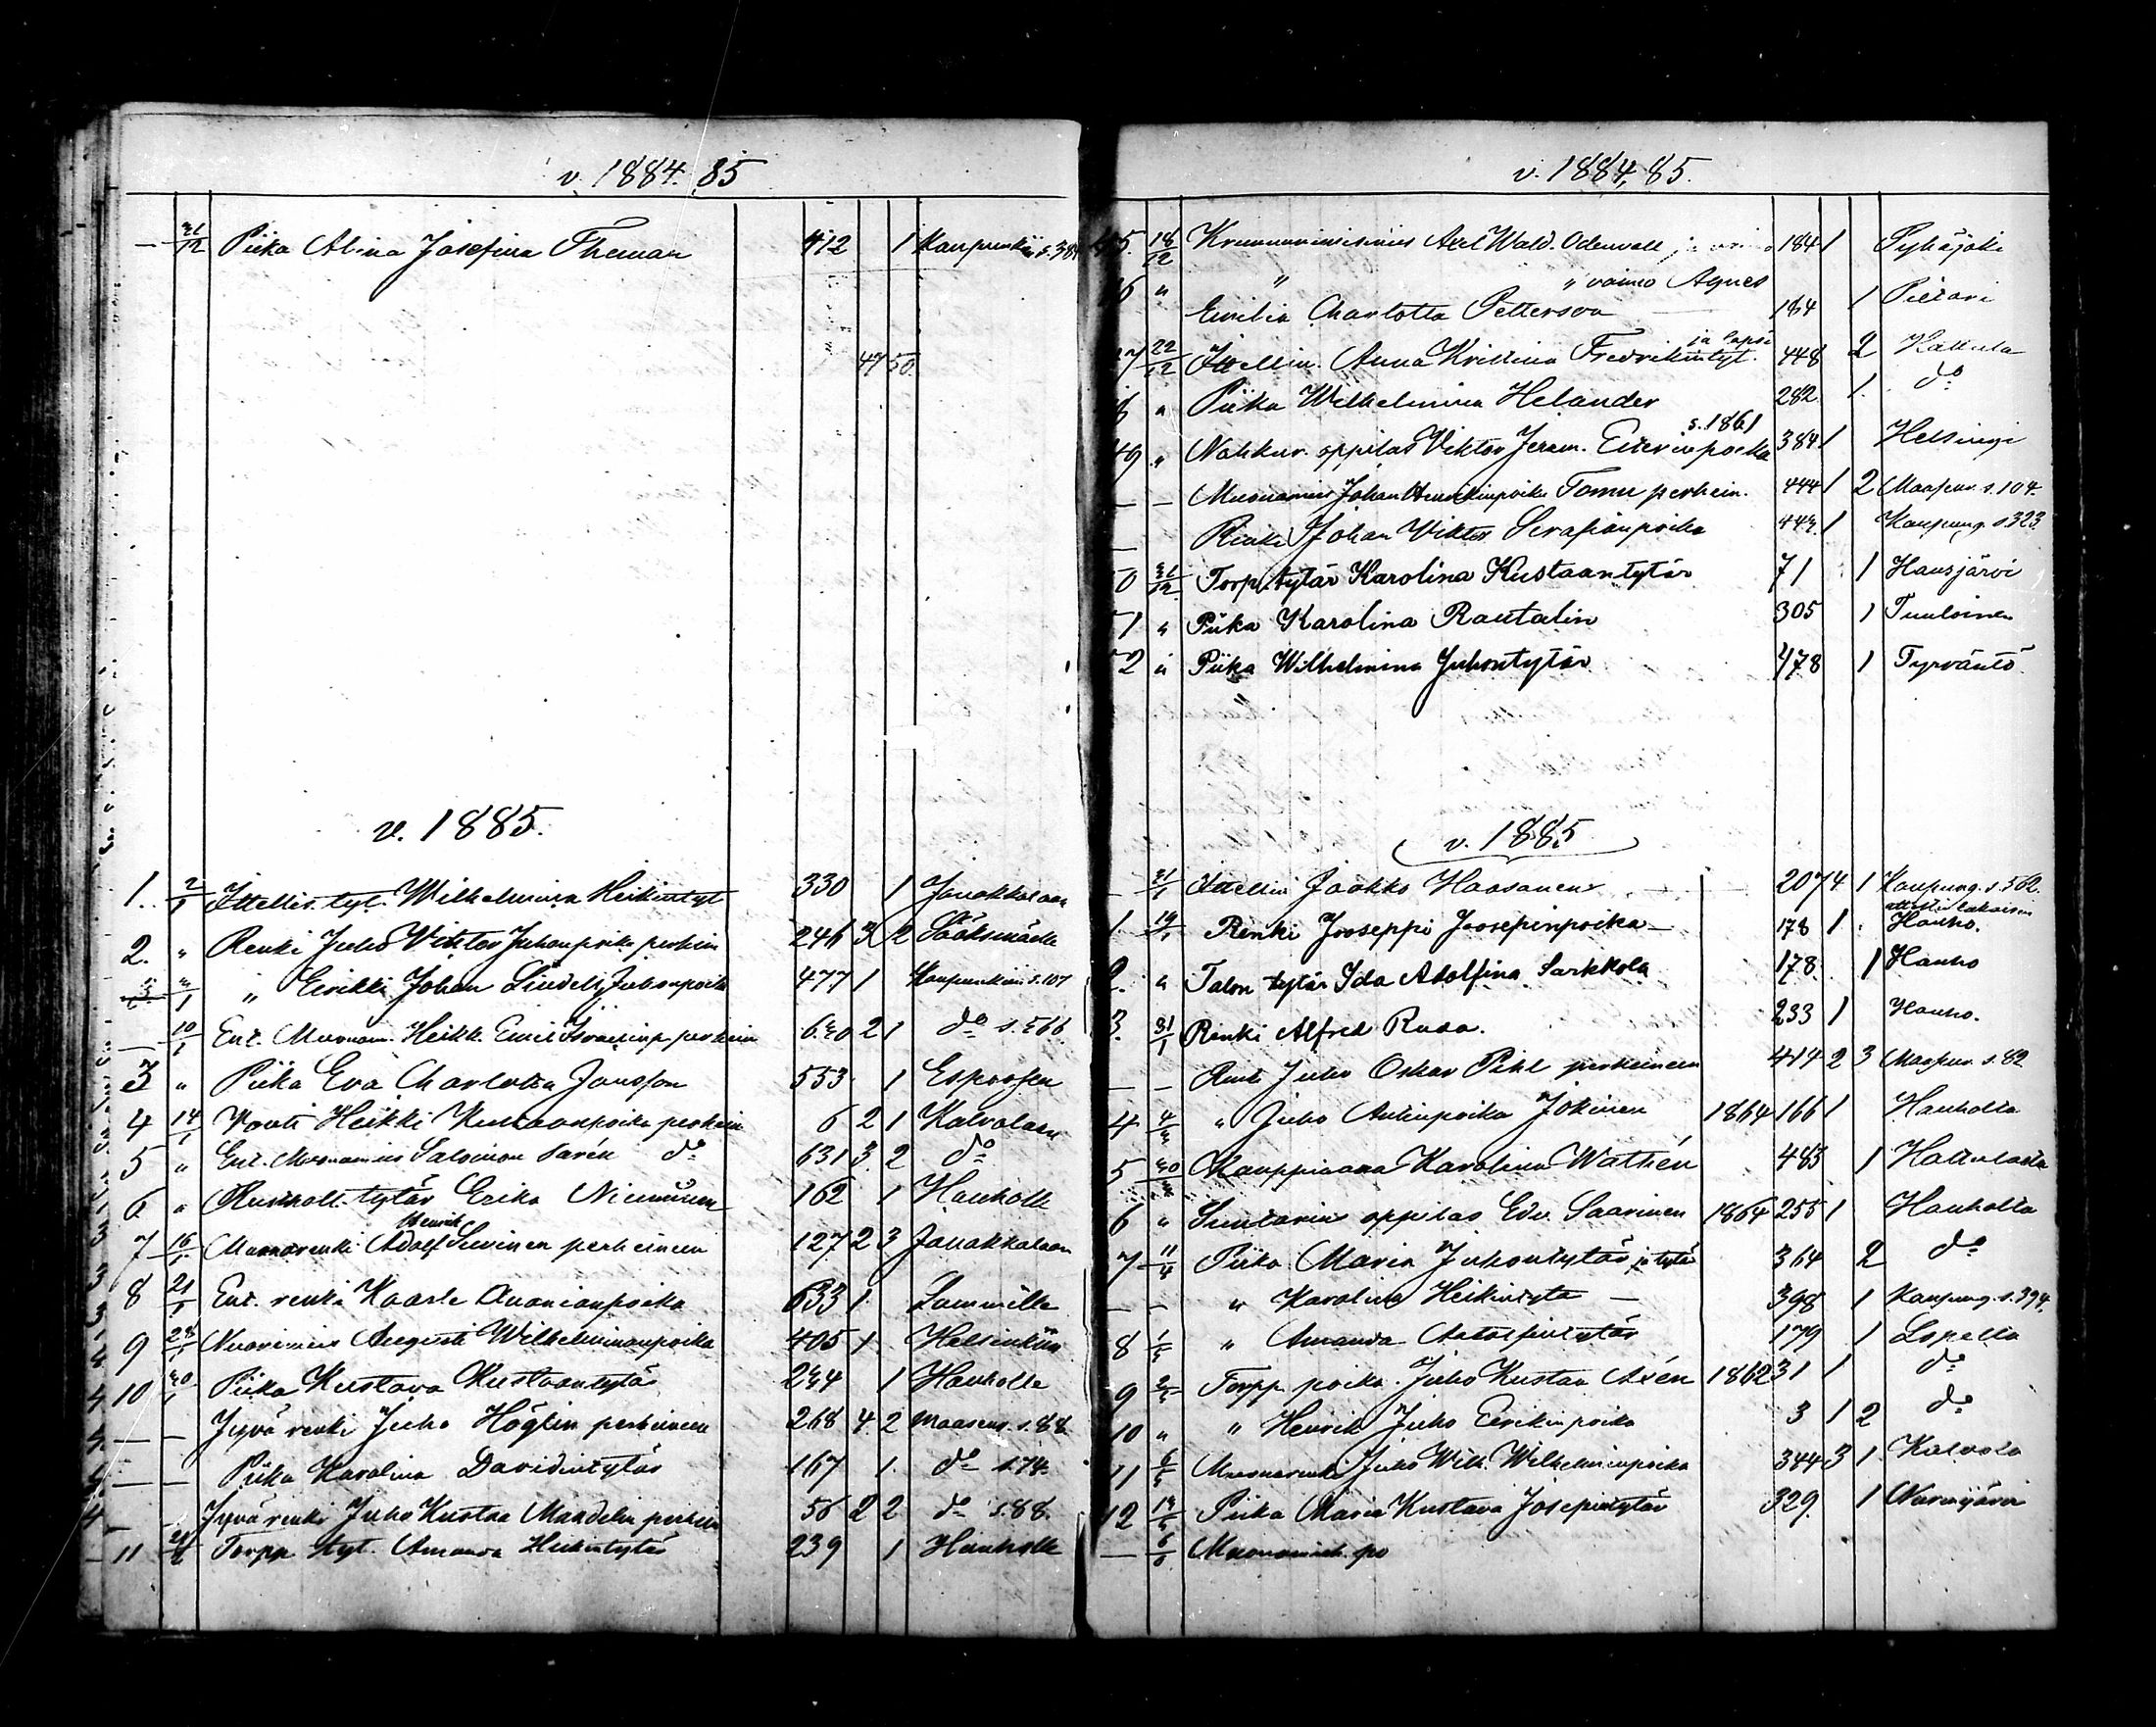 v. 1884. 85
— 31/12 Piika Alina Josefina Theman 412 1 Kaupunkiin s. 384
47 50.
v. 1885.
1. 2/1 Ittellis. tyt. Wilhelmina Heikintyt 330 1 Janakkalaan
2. " Renki Juho Viktor Juhanpoika perhein 246 3 2 Sääksmäelle
" Eerikki Johan Lindell Juhonpoika 477 1 Kaupunkiin s. 107
— 10/1 Ent. Muonam. Heikk. Emil Israelinp. perhein 630 2 1 do s. 566
3 " Piika Eva Charlotta Jansson 553 1 Espoosen
4 14/1 Vouti Heikki Kustaanpoika perhein 6 2 1 Kalvolaan
5 " Ent. Muonamies Salomon Sarén do 631 3 2 do
6 " tytär Erika Nieminen 162 1 Hauholle
7 16/1 Muonarenki Adolf Henrik Suvinen perheineen 127 2 3 Janakkalaan
8 21/1 Ent. renki Kaarle Ananianpoika 633 1 Lammille
9 28/1 Nuorimies Augusti Wilhelminanpoika 405 1 Helsinkiin
10 30/1 Piika Kustava Kustaantytär 234 1 Hauholle
— — Jyvä renki Juho Höglin perheineen 268 4 2 Maaseur. s. 88
— — Piika Karolina Davidintytär 167 1. do s. 74.
— Jyvä renki Juho Kustaa Mandelin perhein 56 2 2 do s. 88.
11 Torpp. tyt. Amanda Heikintytär 239 1 Hauholle
v. 1884, 85.
45. 18/12 Axel Wald. Odenvall 184 1 Pyhäjoki
46 " " " vaimo Agnes
Emilia Charlotta Petterson 184 1 Pietari
ja lapsi
47 22/12 Itsellin. Anna Kristina Fredrikintyt. 448 2 Hattula
" Piika Wilhelmina Helander 282 1. do
s. 1861
49 " Nahkur. oppilas Viktor Jerem. 384 1 Helsingi
— — Muonamies Johan Henrikinpoika Tomu perhein. 444 1 2 Maaseur. s. 104.
— Renki Johan Viktor Serafianpoika 443 1 Kaupung. s. 323
0 31/12 Torp. tytär Karolina Kustaantytär 71 1 Hausjärvi
1 " Piika Karolina Rautalin 305 1 Tuuloinen
2 " Piika Wilhelmina Juhontytär 478 1 Tyrväntö
v. 1885
— 31/1 Itsellin Jaakko Haasanen 207 4 1 Kaupung. s. 562
1 19/1 Renki Jooseppi Joosepinpoika — 178 1 Hauho.
2. " Talon tytär Ida Adolfina Sarkkola 178 1 Hauho
3. 31/1 Renki Alfred Rusa. 233 1 Hauho.
— — Renki Juho Oskar Pihl perheineen 414 2 3 Maaseur s. 82
4 4/3 " Juho Antinpoika Jokinen 1864 166 1 Hauholta
5 30/3 Kauppiaana Karolina Wathén 483 1 Hattulasta
6 " Suutarin oppilas Edv. Saarinen 1864 255 1 Hauholta
7 11/4 Piika Maria Juhontytär ja tytär 364 2 do
— — " Karolina Heikintytä — 398 1 Kaupung. s. 394.
8 " Amanda Adolfintytär 179 1 Lopelta
9 Torpp poika Juho Kustaa Axén 1862 31 1 do
10 " " Henrik Juho Eerikinpoika 3 1 2 do
11 Muonarenki Juho Wilh. Wilhelminpoika 344 3 1. Kalvola
12 Piika Maria Kustava Josepintytär 329. 1 Nurmijärvi
—